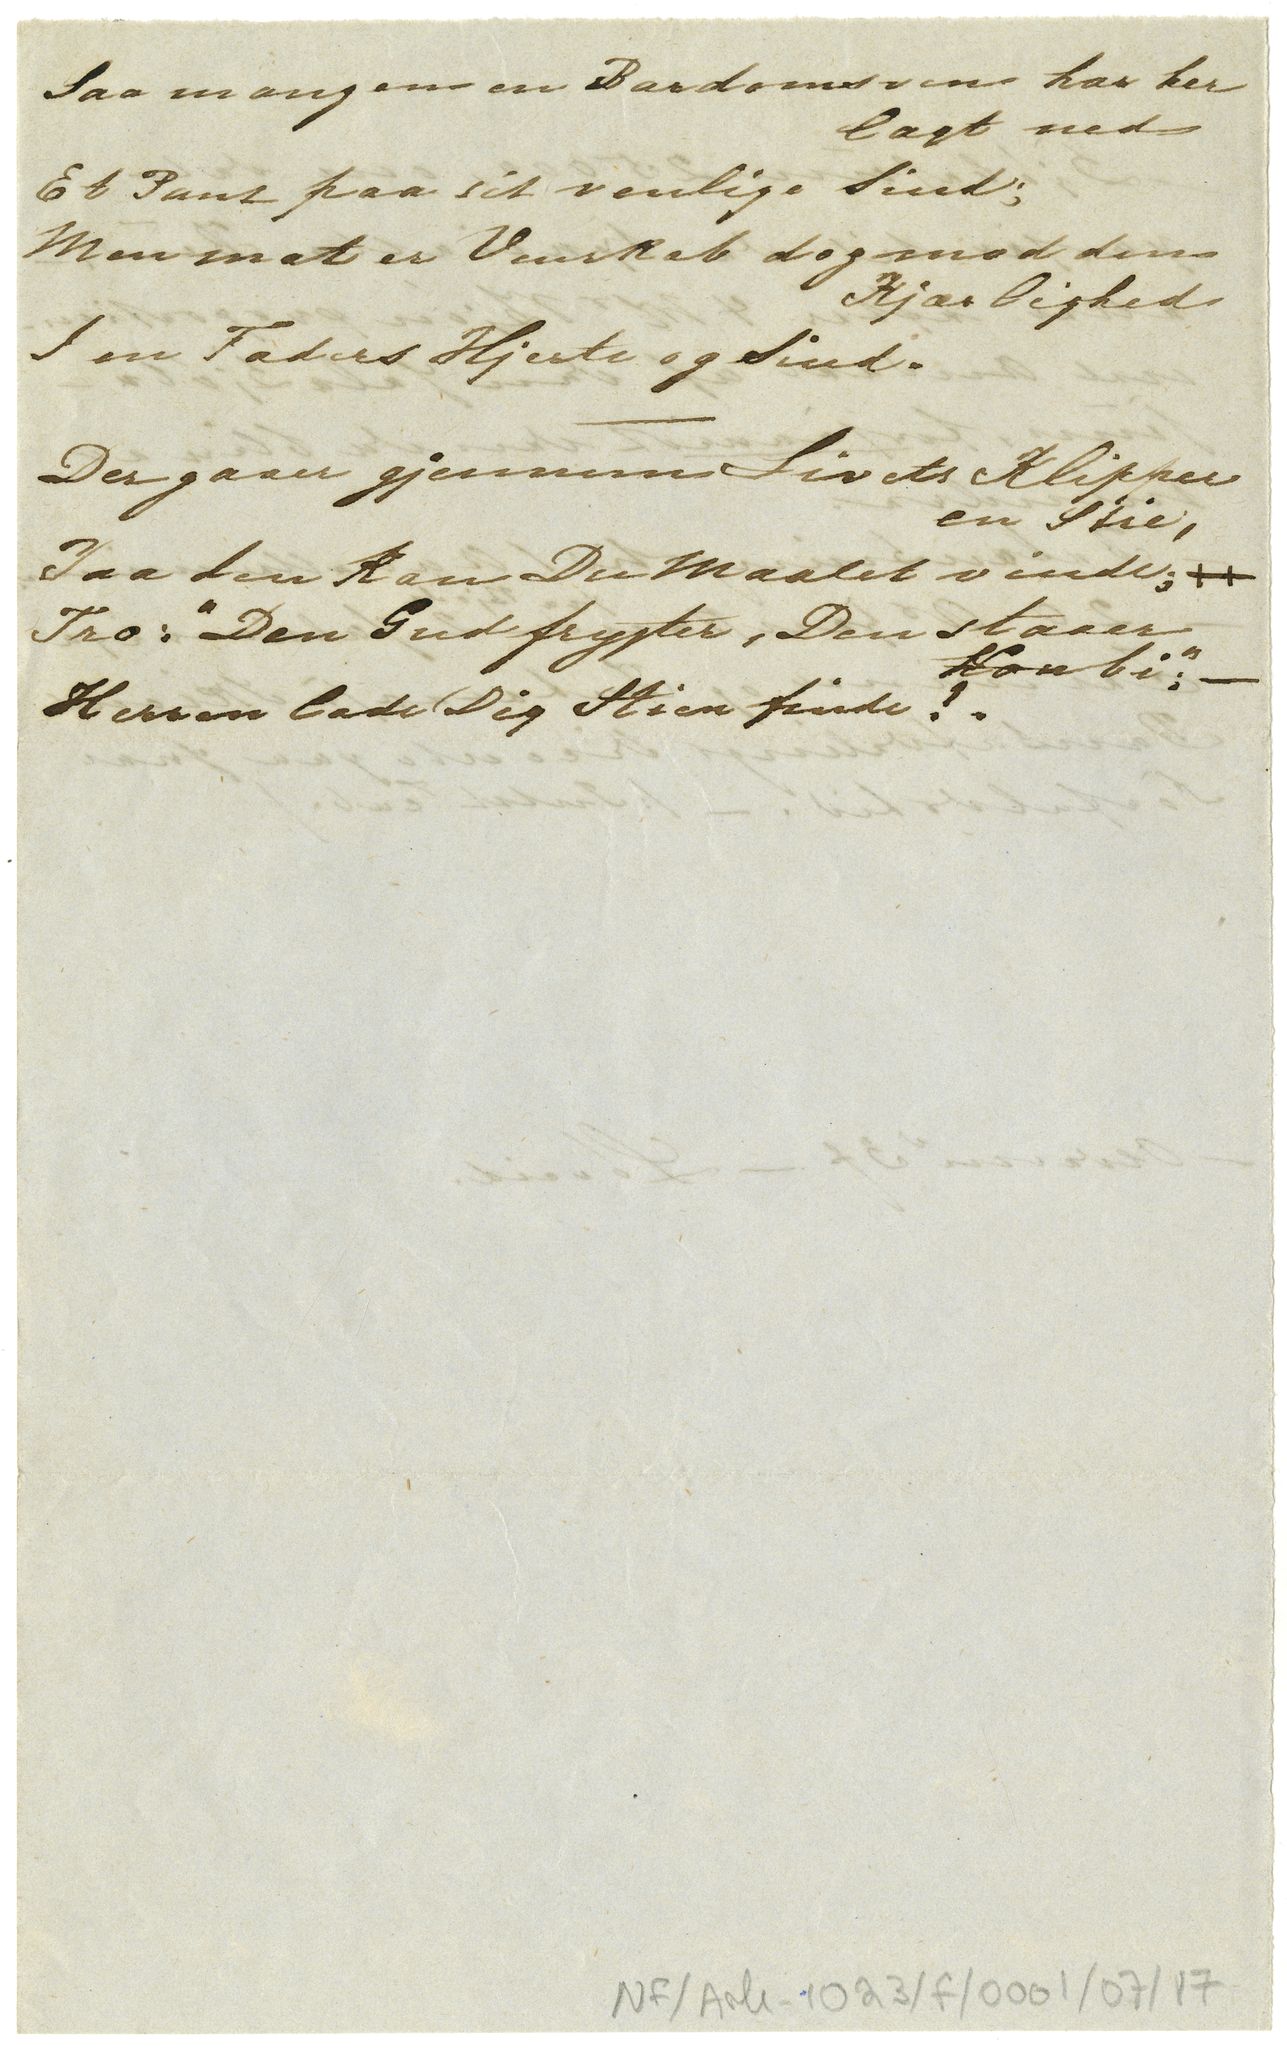 Saa mangen en Bardomsven har her
lagt ned
Et Pant paa sit venlige Sind;
Men mat er Venskab dog mod den
Kjærlighed
I en Faders Hjerte og Sind.
Der gaaer gjennem Livets Klipper
en Stie,
Paa den Kan Du Maalet vinde;
Tro: "Den Gud frygter, Den staaer
Han bi"; —
Herren lade Dig Stien finde!.
NF/Ark-1023/F/0001/07/17